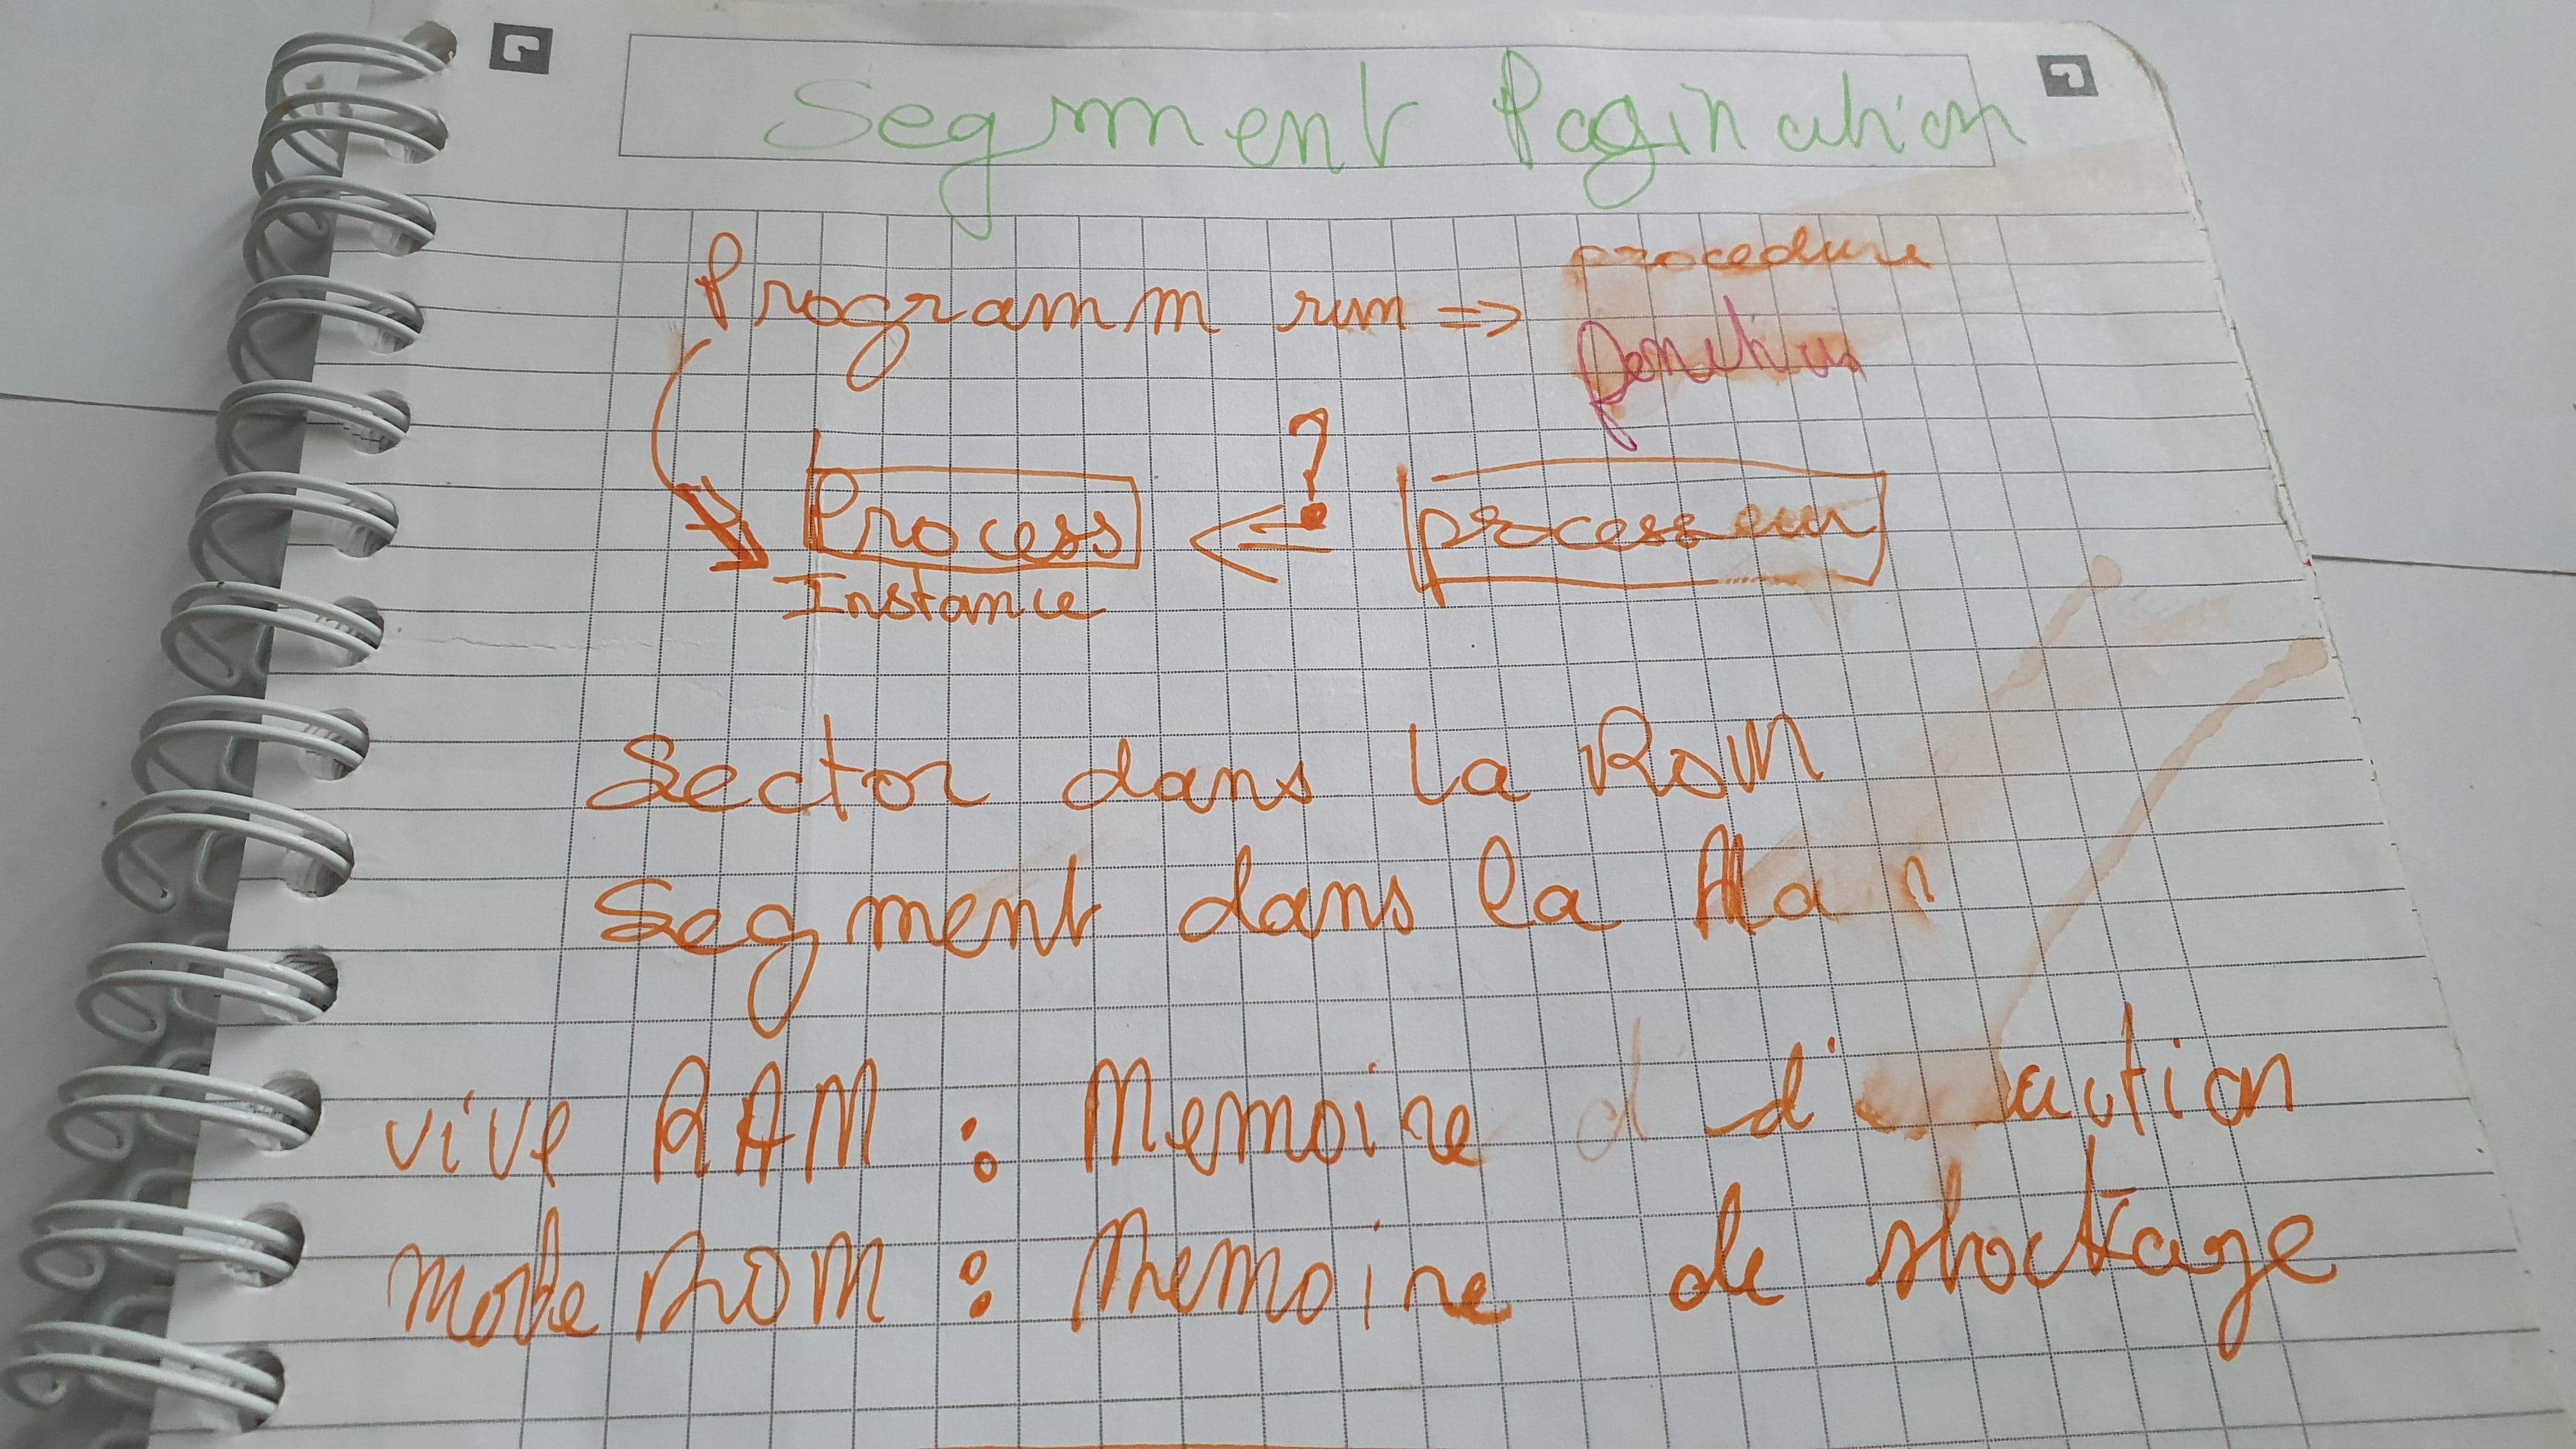 Segment Pagination
Programm run =>
procedure
fonction
Process <= ? processeur
Instance
Sector dans la ROM
Segment dans la
vive RAM : Memoire
morte ROM : Memoire de shockage